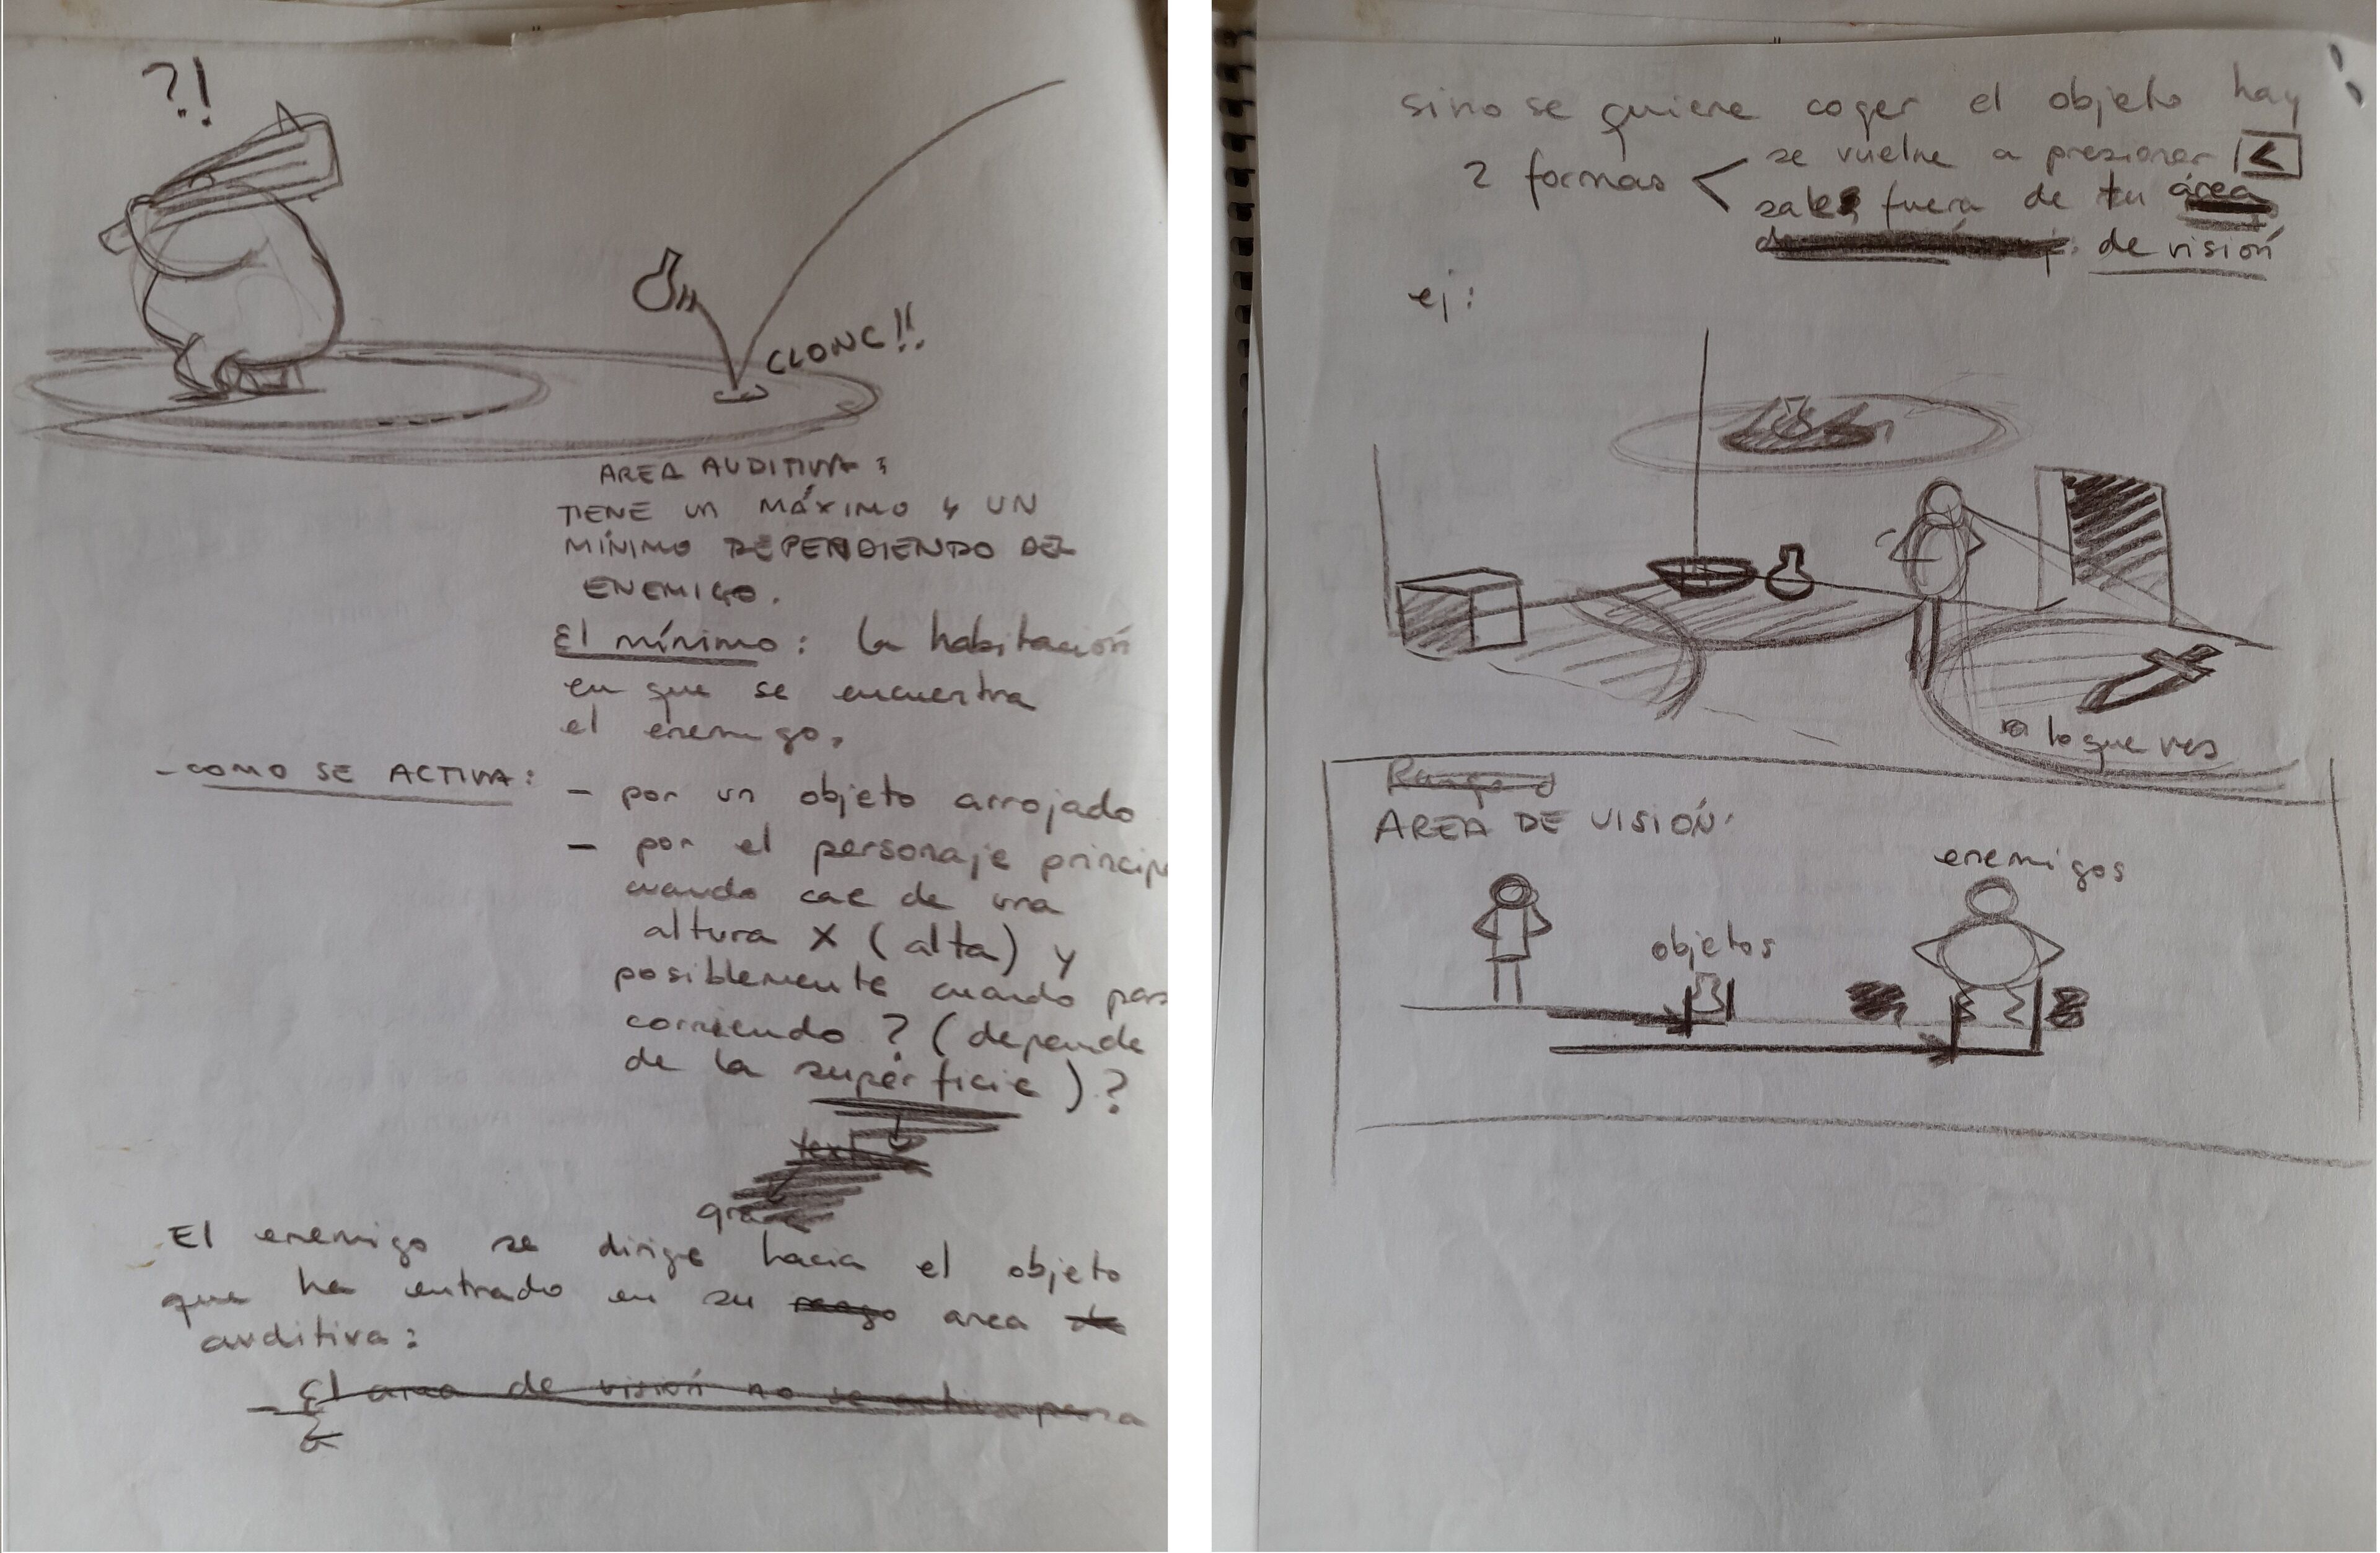 ?!
CLONC!!
AREA AUDITIVA:
TIENE UN MÁXIMO Y UN
MÍNIMO DEPENDIENDO DEL
ENEMIGO.
El mínimo: la habitación
en que se encuentra
el enemigo.
- COMO SE ACTIVA:
- por un objeto arrojado
- por el personaje princip
cuando cae de una
altura X (alta) y
posiblemente cuando pas
corriendo? (depende
de la superficie)?
El enemigo se dirige hacia el objeto
que ha entrado en su rango area de
auditiva:
- El area de visión no se activa para
sino se quiere coger el objeto hay
2 formas <
se vuelve a presionar <
sale fuera de tu área
de visión
ej:
a lo que ves
Rango d
AREA DE VISIÓN:
enemigos
objetos